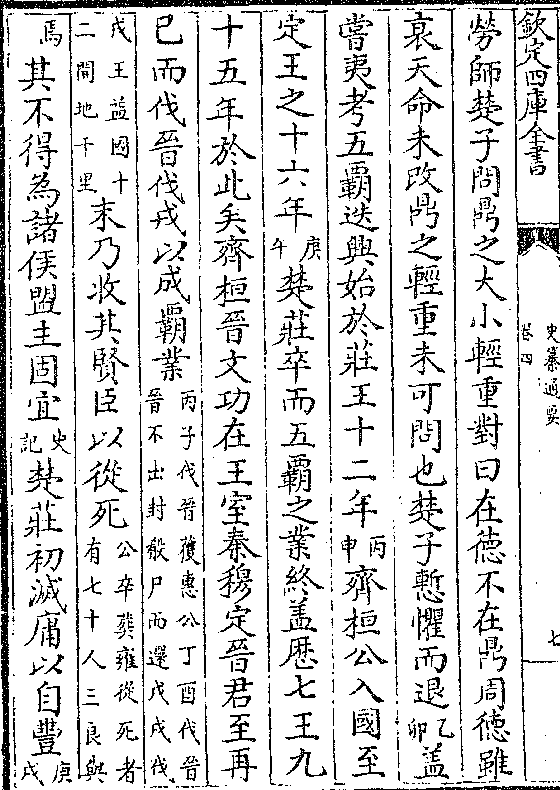 欽定四庫全書
史纂通要
卷四
七
勞師楚子問鼎之大小輕重對曰在徳不在鼎周徳雖
衰天命未改鼎之輕重未可問也楚子慙懼而退乙卯盖
嘗夷考五覇迭興始於莊王十二年丙申齊桓公入國至
定王之十六年庚午楚莊卒而五覇之業終盖歴七王九
十五年於此矣齊桓晉文功在王室秦穆定晉君至再
已而伐晉伐戎以成覇業丙子伐晉獲惠公丁酉伐晉晉不出封殽尸而還戊戌伐
戎王益國十二闢地千里末乃收其賢臣以從死公卒葬雍從死者有七十人三良與
焉其不得為諸侯盟主固宜史記楚莊初滅庸以自豐庚戌